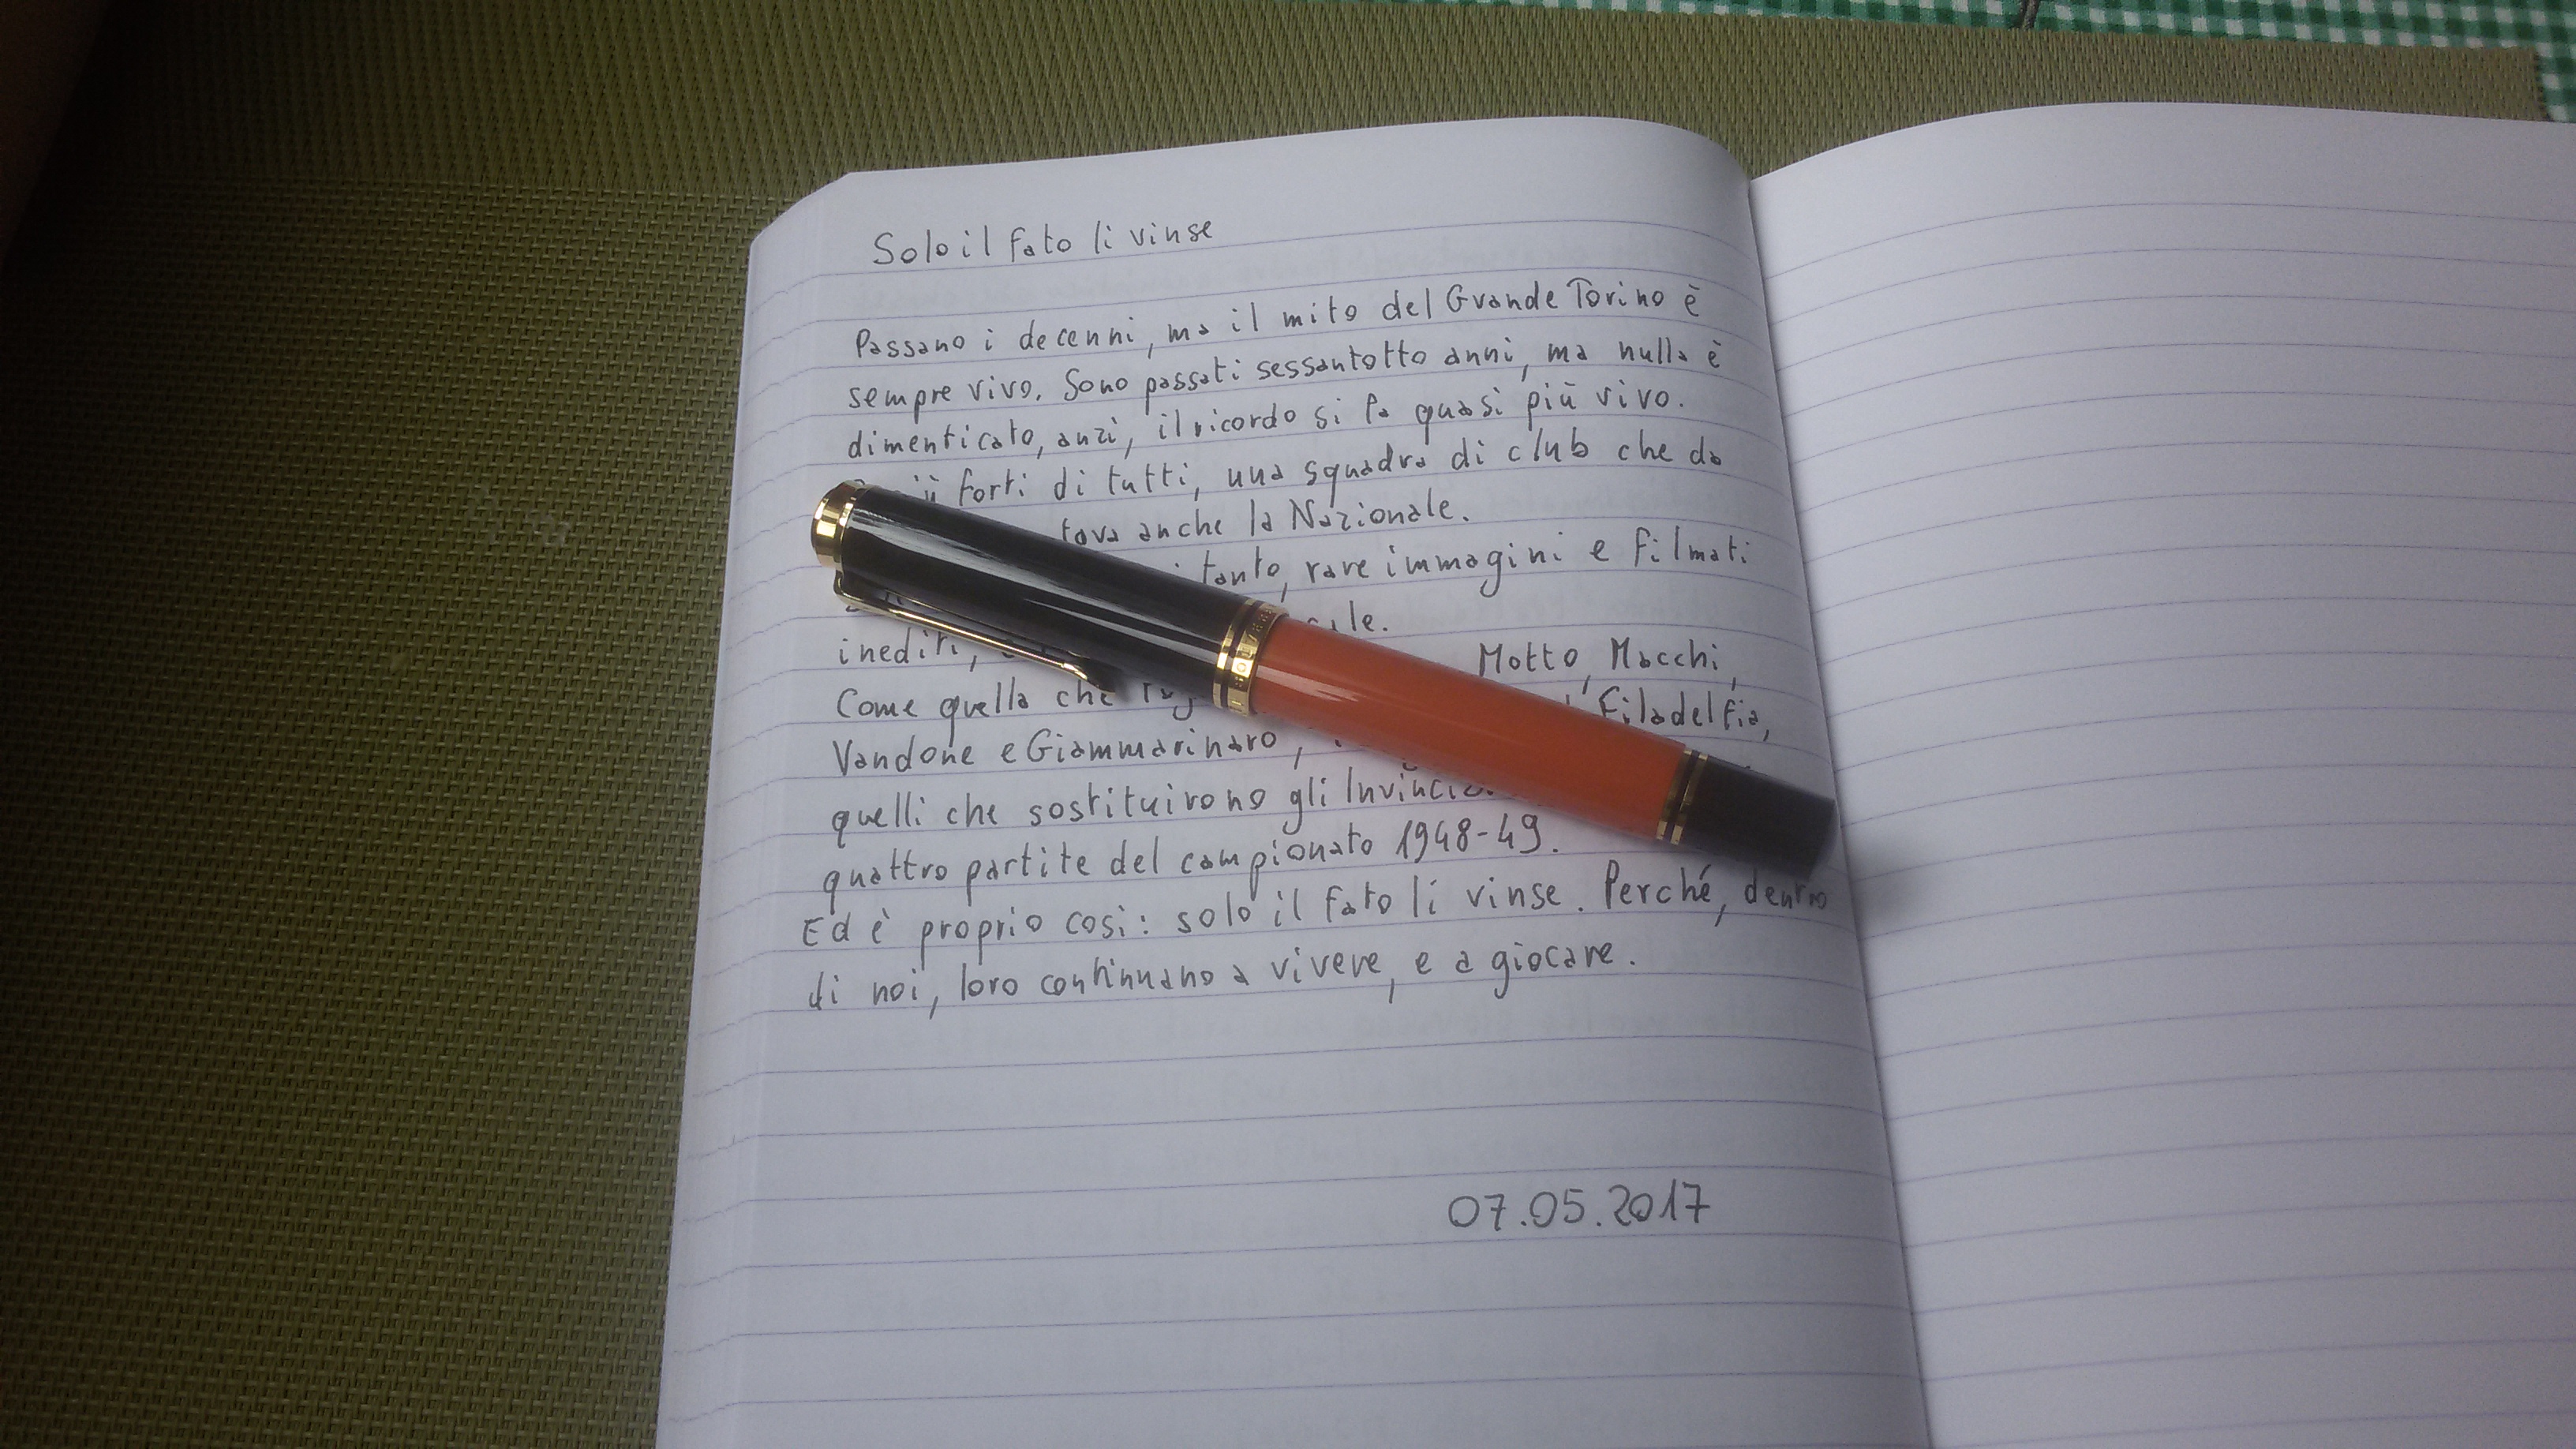 Solo il fato li vinse
Passano i decenni, ma il mito del Grande Torino è
sempre vivo. Sono passati sessantotto anni, ma nulla è
dimenticato, anzi, il ricordo si fa quasi più vivo.
forti di tutti, una squadra di club che da
anche la Nazionale.
tanto, rare immagini e filmati
inediti,
Motto, Macchi,
Come quella che
Filadelfia,
Vandone e Giammarinaro,
quelli che sostituirono gli
quattro partite del campionato 1948-49.
Ed è proprio così: solo il fato li vinse. Perché, dentro
di noi, loro continuano a vivere, e a giocare.
07.05.2017